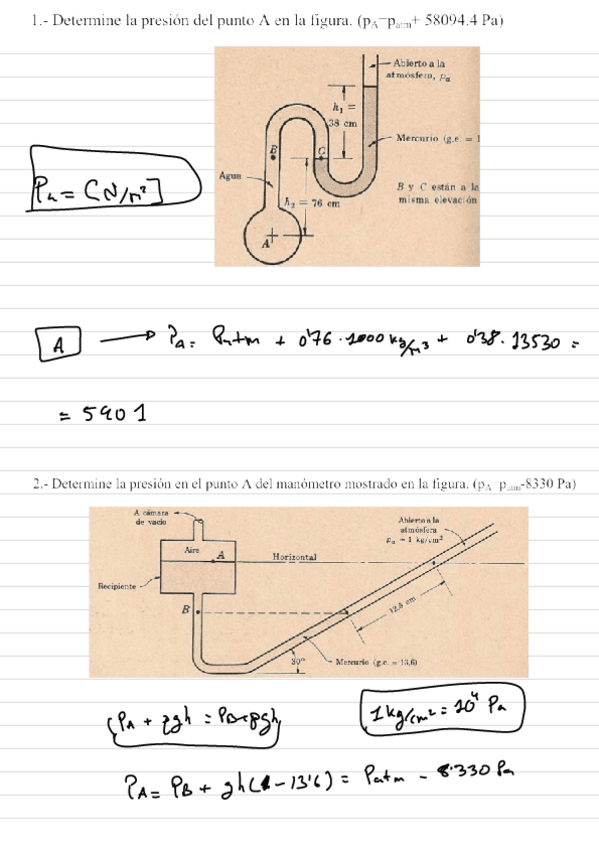 1.- Determine la presión del punto A en la figura. (pA=patm+ 58094.4 Pa)
Abierto a la
atmósfera, pa
h1 =
38 cm
Mercurio (g.e. = 1
B
C
Agua
B y C están a la
misma elevación
h2 = 76 cm
A
Pa = [N/m²]
A → PA = Patm + 0'76 · 1000 kg/m³ + 0'38 · 13530 =
= 5901
2.- Determine la presión en el punto A del manómetro mostrado en la figura. (pA patm-8330 Pa)
A cámara
de vacío
Abierto a la
atmósfera
pa = 1 kg/cm²
Aire
A
Horizontal
Recipiente
B
12,5 cm
30°
Mercurio (g.e. = 13,6)
1kg/cm² = 10⁴ Pa
PA = PB + gh(1-13'6) = Patm - 8.330 Pa